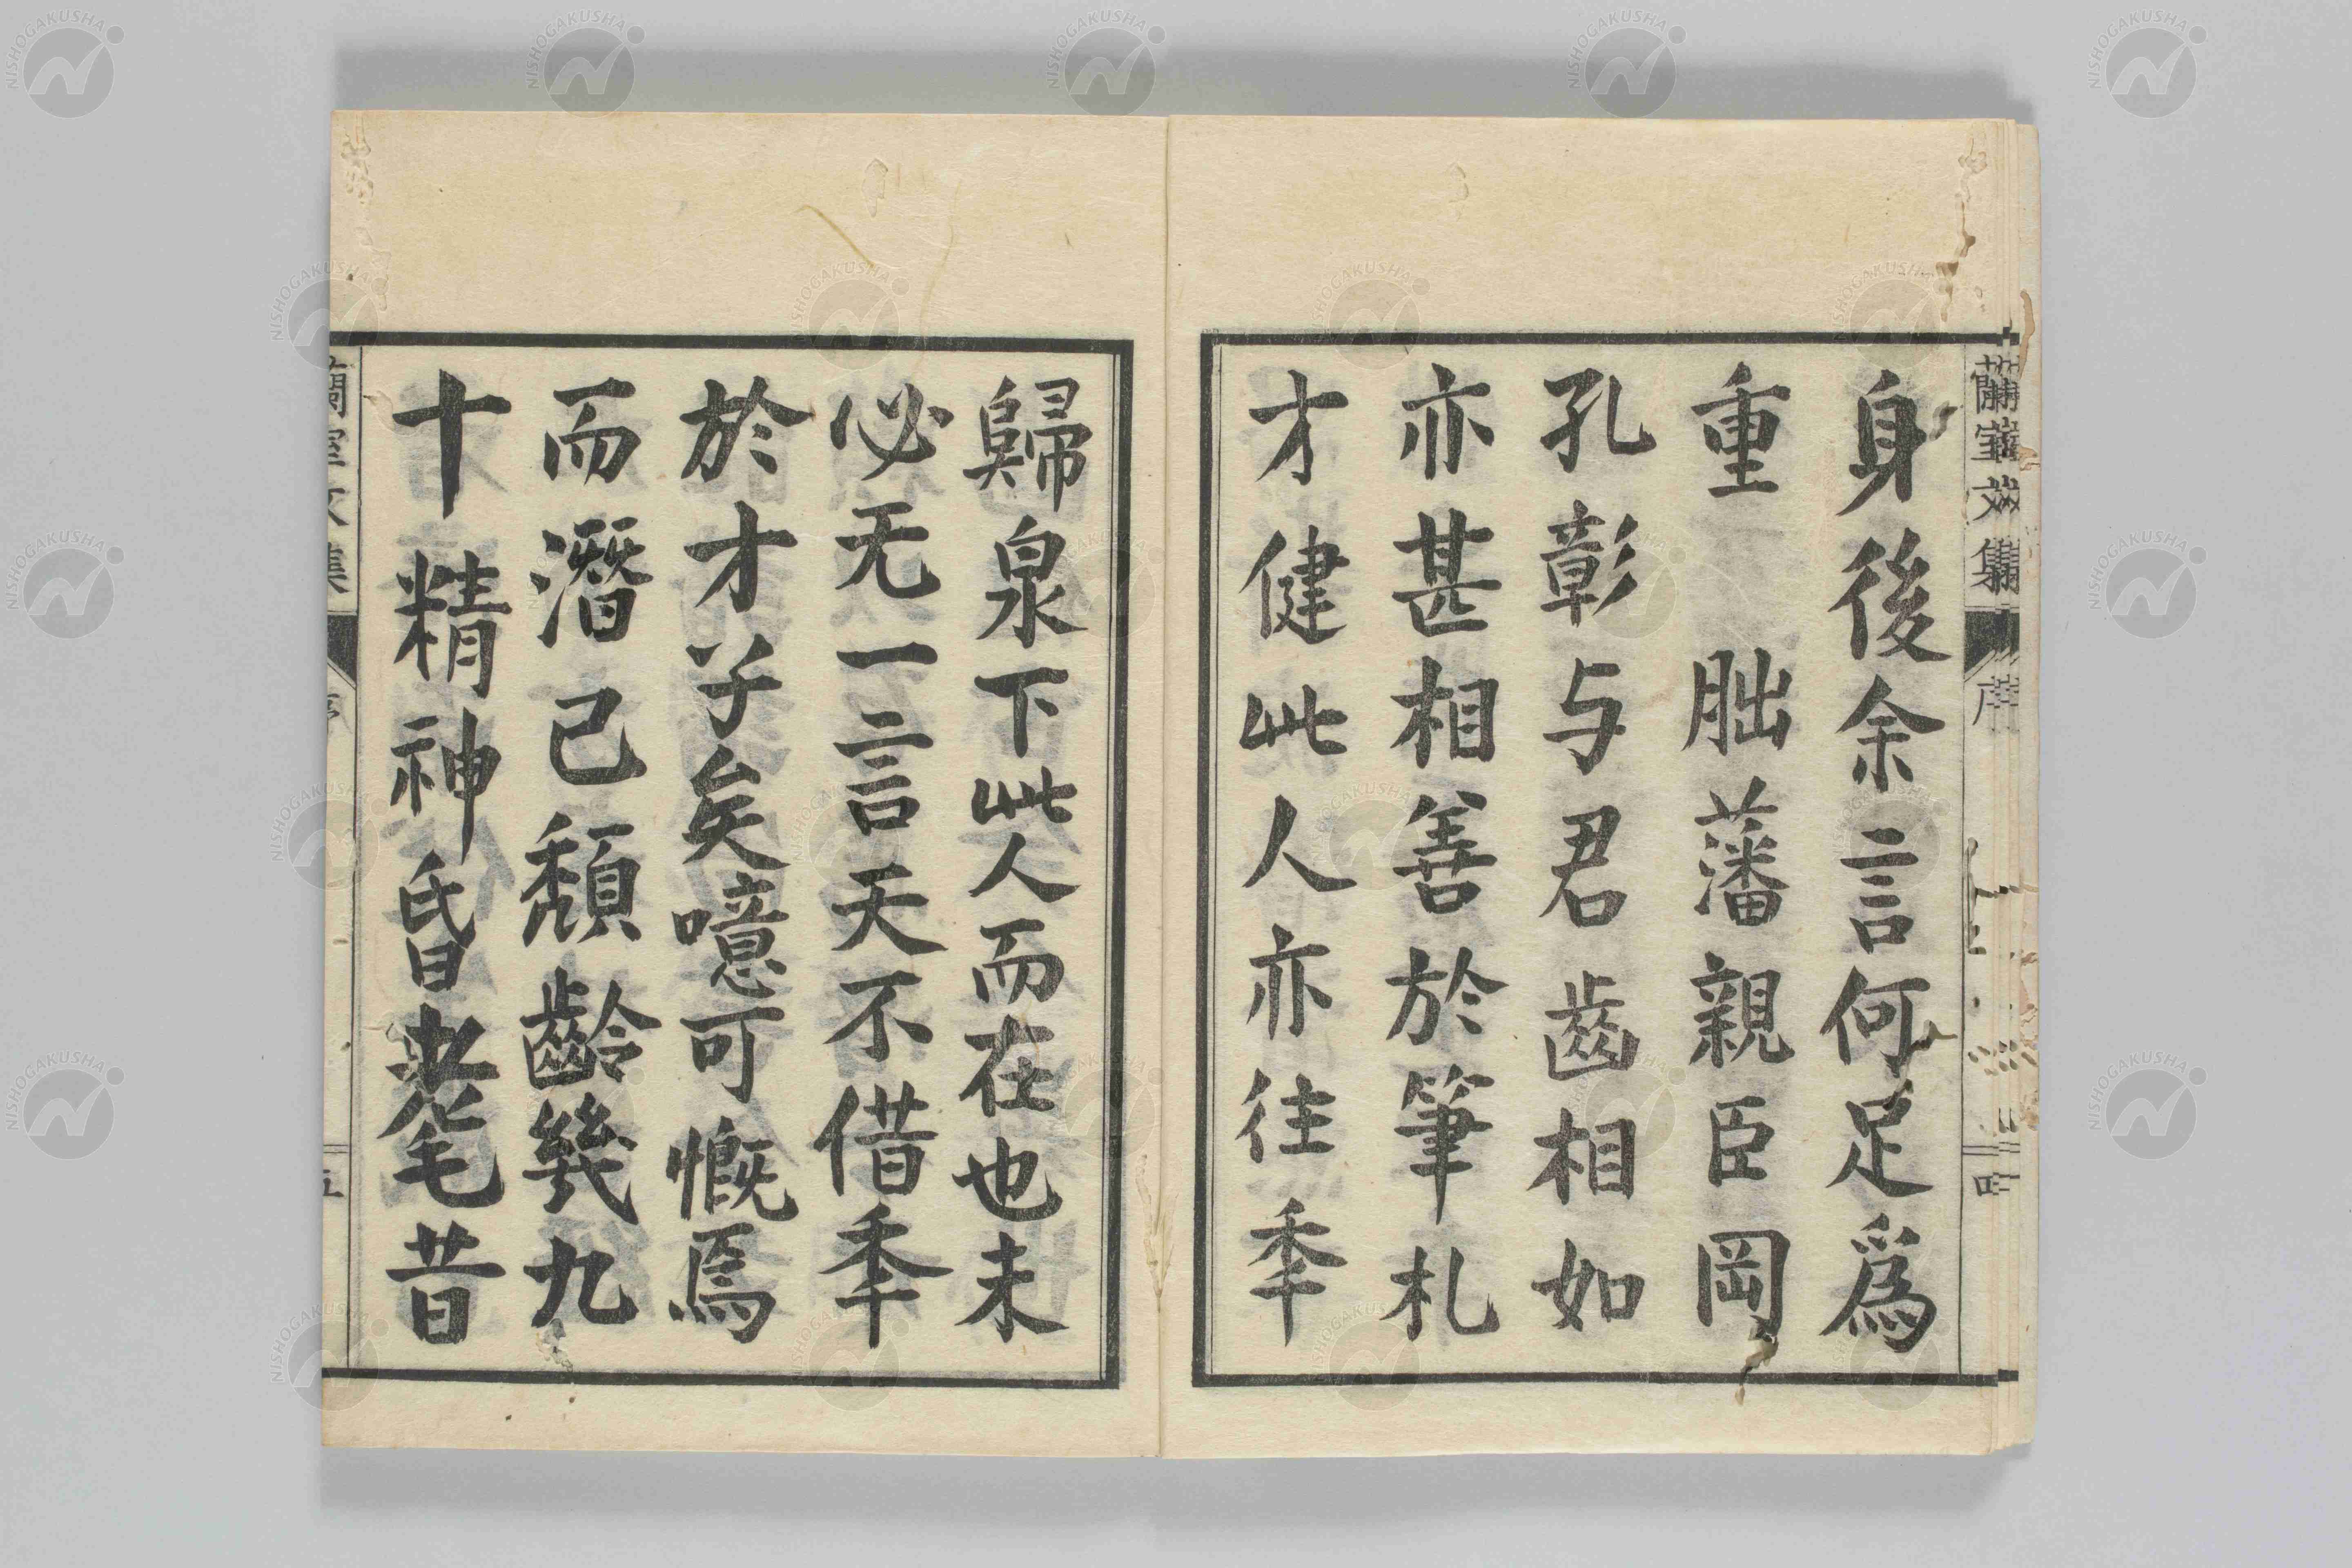 蘭室文集
序
四
身後余言何足爲
重　朏藩親臣岡
孔彰与君齒相如
亦甚相善於筆札
才健此人亦往季
歸泉下此人而在也未
必无一言天不借季
於才子矣噫可慨焉
而潛己頹齡幾九
十精神昬耄昔
蘭室文集
序
五
NISHOGAKUSHA